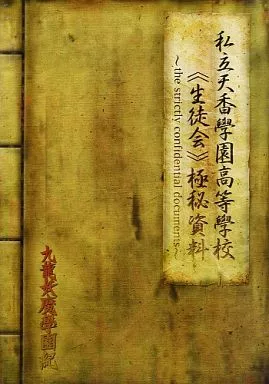 私立天香學園高等學校
《生徒会》極秘資料
~the strictly confidential documents~
九龍妖魔學園紀